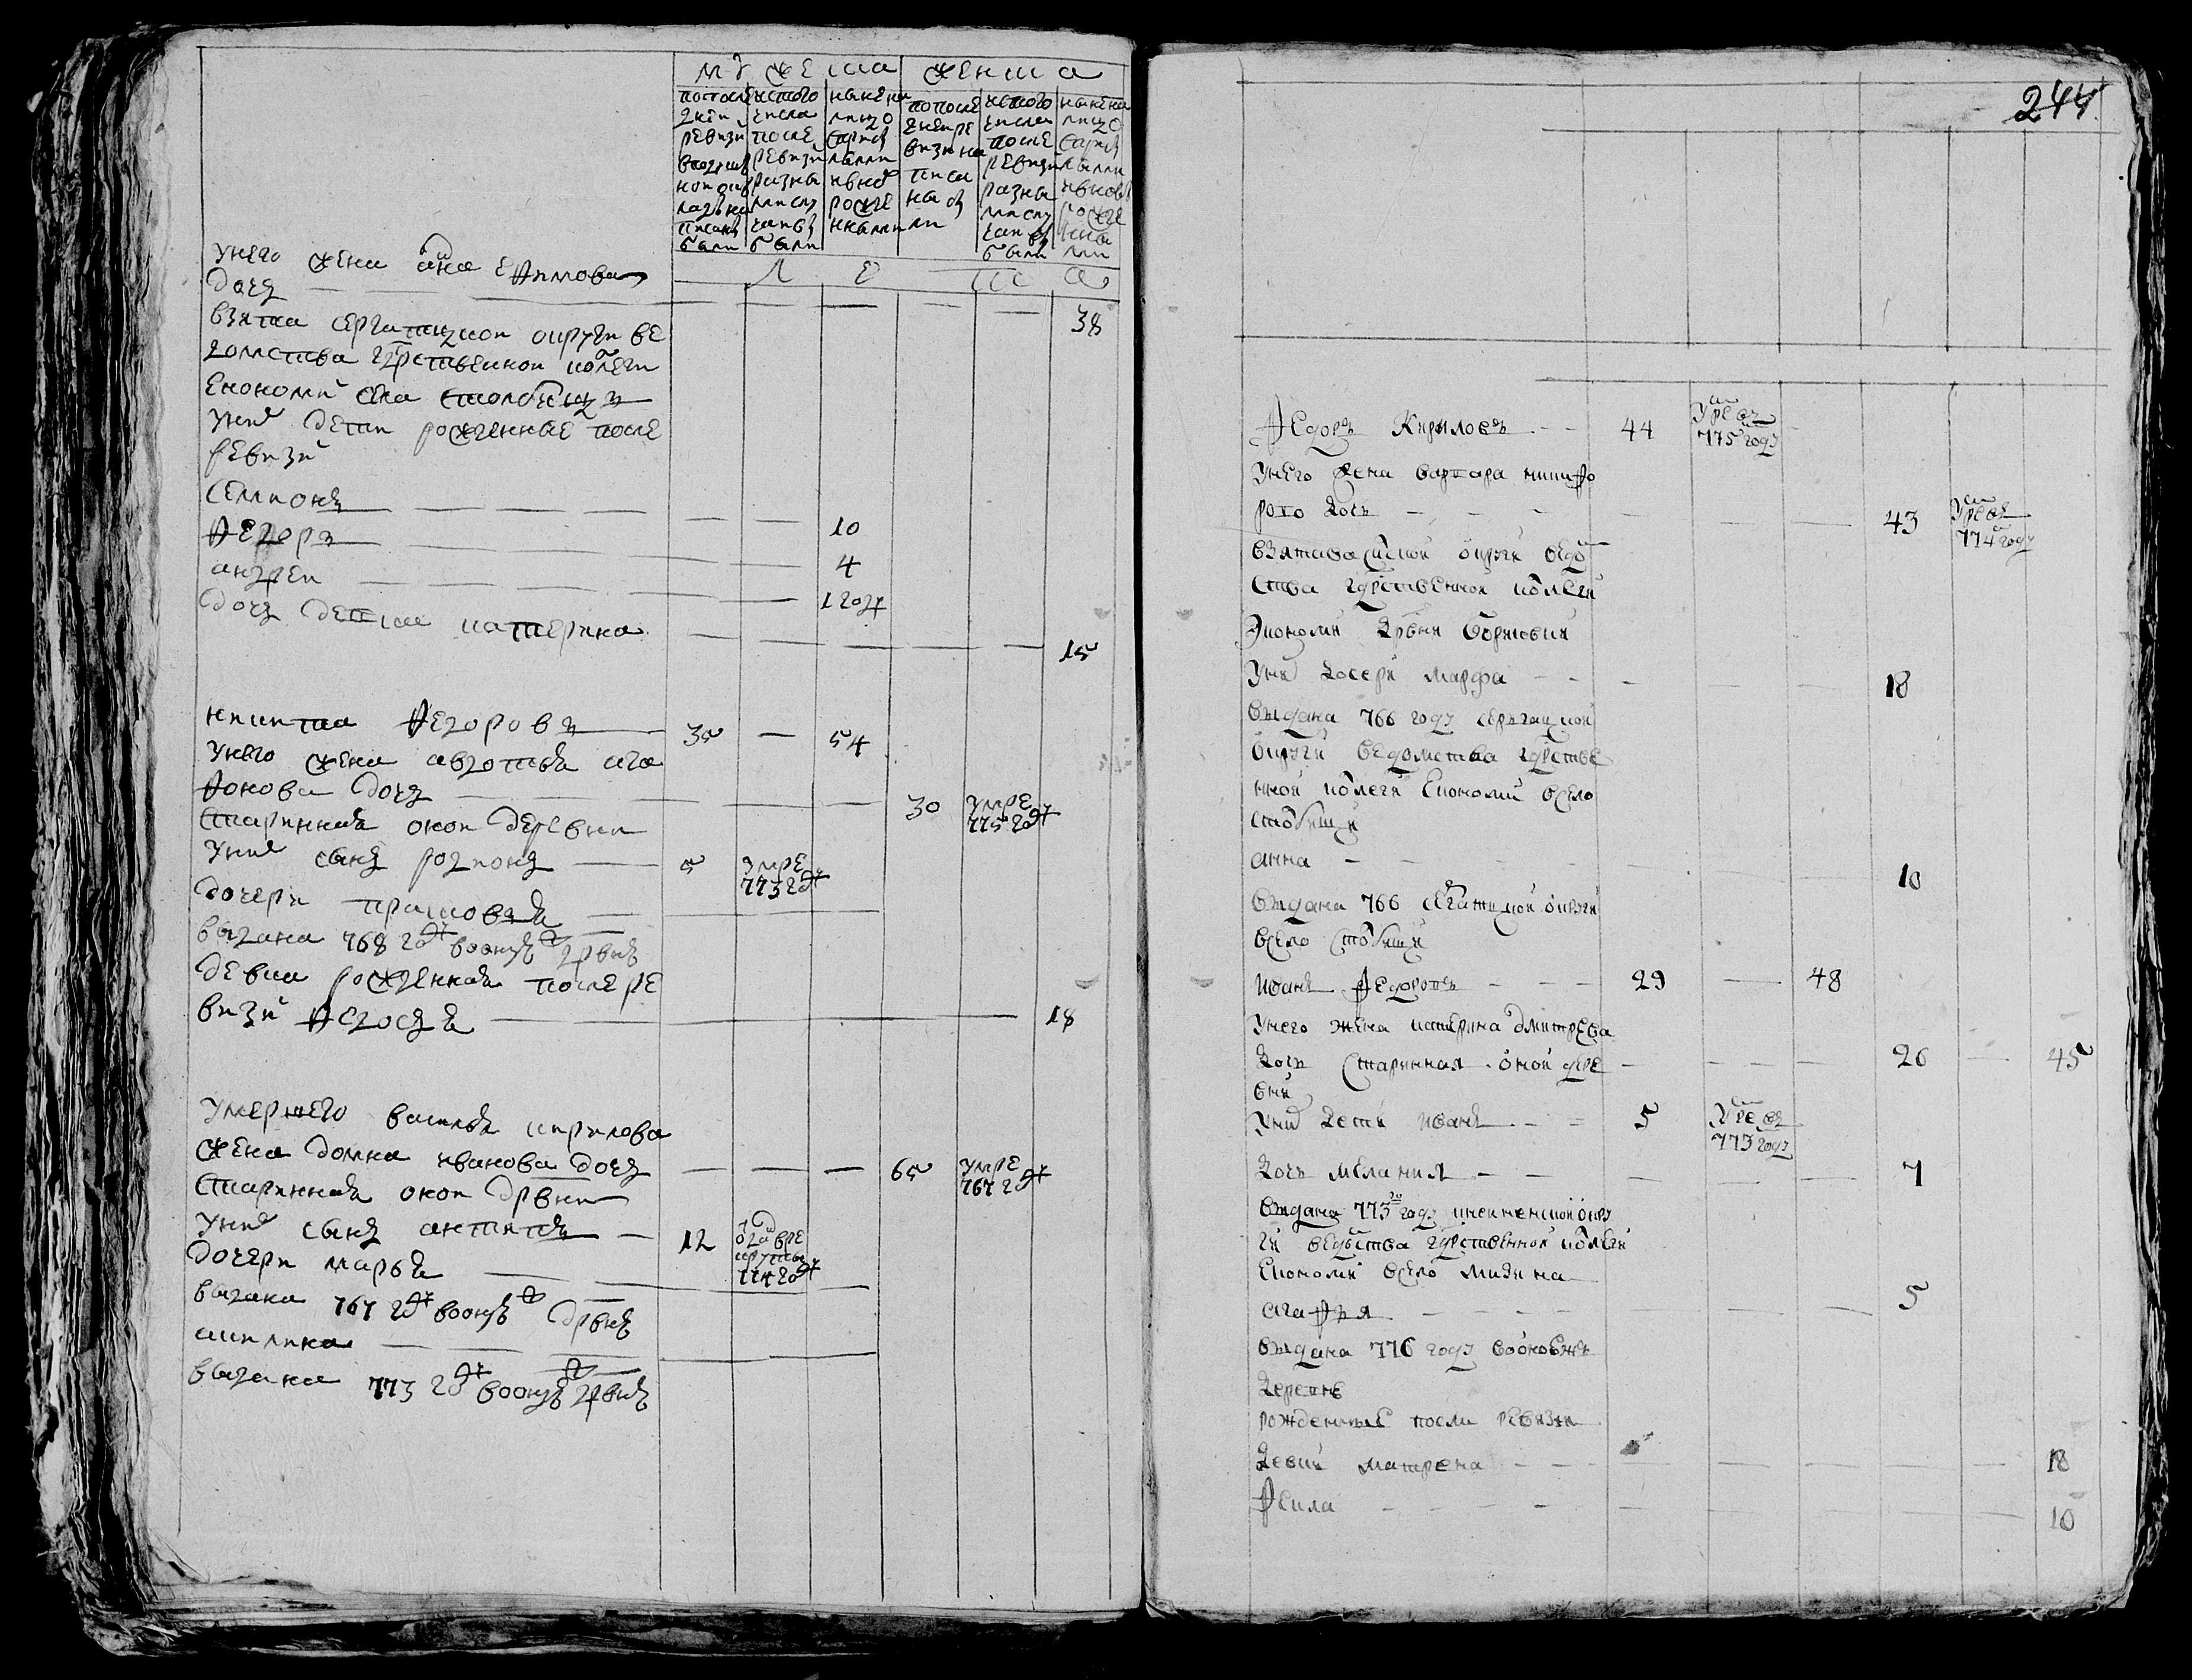 мужеска женска
попосле дней ревизи вподушной окладнаписаны были
изтого числа после ревизи разными случаи убыли
ныне налицо старых ными ивновь рожденными
попоследней ревизи написаны ли
изтого числа после ревизи разными случаи убыли
ныне налицо старых ными ивновь рожденными
л е т а
унего жена анна ефимова
дочь — 38
взята сергацкои округи ве
домства гдрственнои колеги
економи села столбищъ
уних дети рожденные после
ревизи
семионъ — — 10
федоръ — — 4
андреи — — 1 году
дочь девка катерина — — 15
никита федоровъ 35 — 54
унего жена авдотья ага
фонова дочь — 30 умре 775 году
старинная онои деревни
у них сынъ родионъ — 5 умре 773 году
дочери прасковья —
выдана 768 году вооную дрвню
девка рожденная после ре
визи федосья — 18
умершего василья кирилова
жена домна иванова дочь — — — 65 умре 767 году
старинная онои дрвни
у них сынъ антипъ — 12 отдан в рекруты 774 году
дочери марья —
выдана 767 году вооную дрвню
акилина —
выдана 773 году вооную дрвню
244
Федоръ Кириловъ — 44 умре въ 775 году
унего жена варвара никифо
рова дочь — — 43 умре въ 774 году
взята васильскои округи ведом
ства гдрственнои колеги
экономи дрвни
у них дочери марфа — — 18
выдана 766 году сергацкои
округи ведомства гдрстве
ннои колеги економи всело
столбищи
анна — 10
выдана 766 сергацкои округи
всело столбищи
иванъ федоровъ — — 29 — 48
унего жена катерина дмитрева
дочь старинная онои дере — 26 — 45
вни
у них дети иванъ — 5 умре въ 773 году
дочь мелания — — 7
выдана 773го году округи
ги ведомства гдрственнои колеги
економи всело
агафья — — 5
выдана 776 году вооновже
деревне
рожденные после ревизи
девки матрена — — 18
фекла — — 10